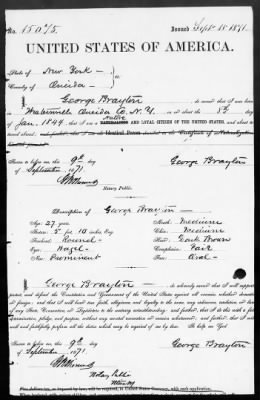 No. 15075. Issued Sept 18 1871.
UNITED STATES OF AMERICA.
State of New York
County of Oneida
I, George Brayton do swear that I was born
in Oneida Co. N.Y. on or about the 8th day
of Jan. 1844, that I am a Native AND LOYAL CITIZEN OF THE UNITED STATES, and about to
Sworn to before me, this 9th day
of September 1871
George Brayton
Notary Public.
Description of George Brayton
Age: 27 years Mouth: Medium
Stature: 5 ft 10 inches Eng. Chin: Medium
Forehead: Round Hair: Dark Brown
Eyes: Hazel Complexion: Fair
Nose: Prominent Face: Oval
I, George Brayton do solemnly swear that I will support, protect and
defend the Constitution and Government of the United States against all enemies, whether domestic
or foreign; and that I will bear true faith, allegiance and loyalty to the same, any ordinance, resolution or law
of any State, Convention or Legislature to the contrary notwithstanding; and further, that I do this with a full
determination, pledge and purpose, without any mental reservation or evasion whatsoever; and further, that I will
well and faithfully perform all the duties which may be required of me by law. So help me God
Sworn to before me, this 9th
day of September 1871
George Brayton
Notary Public